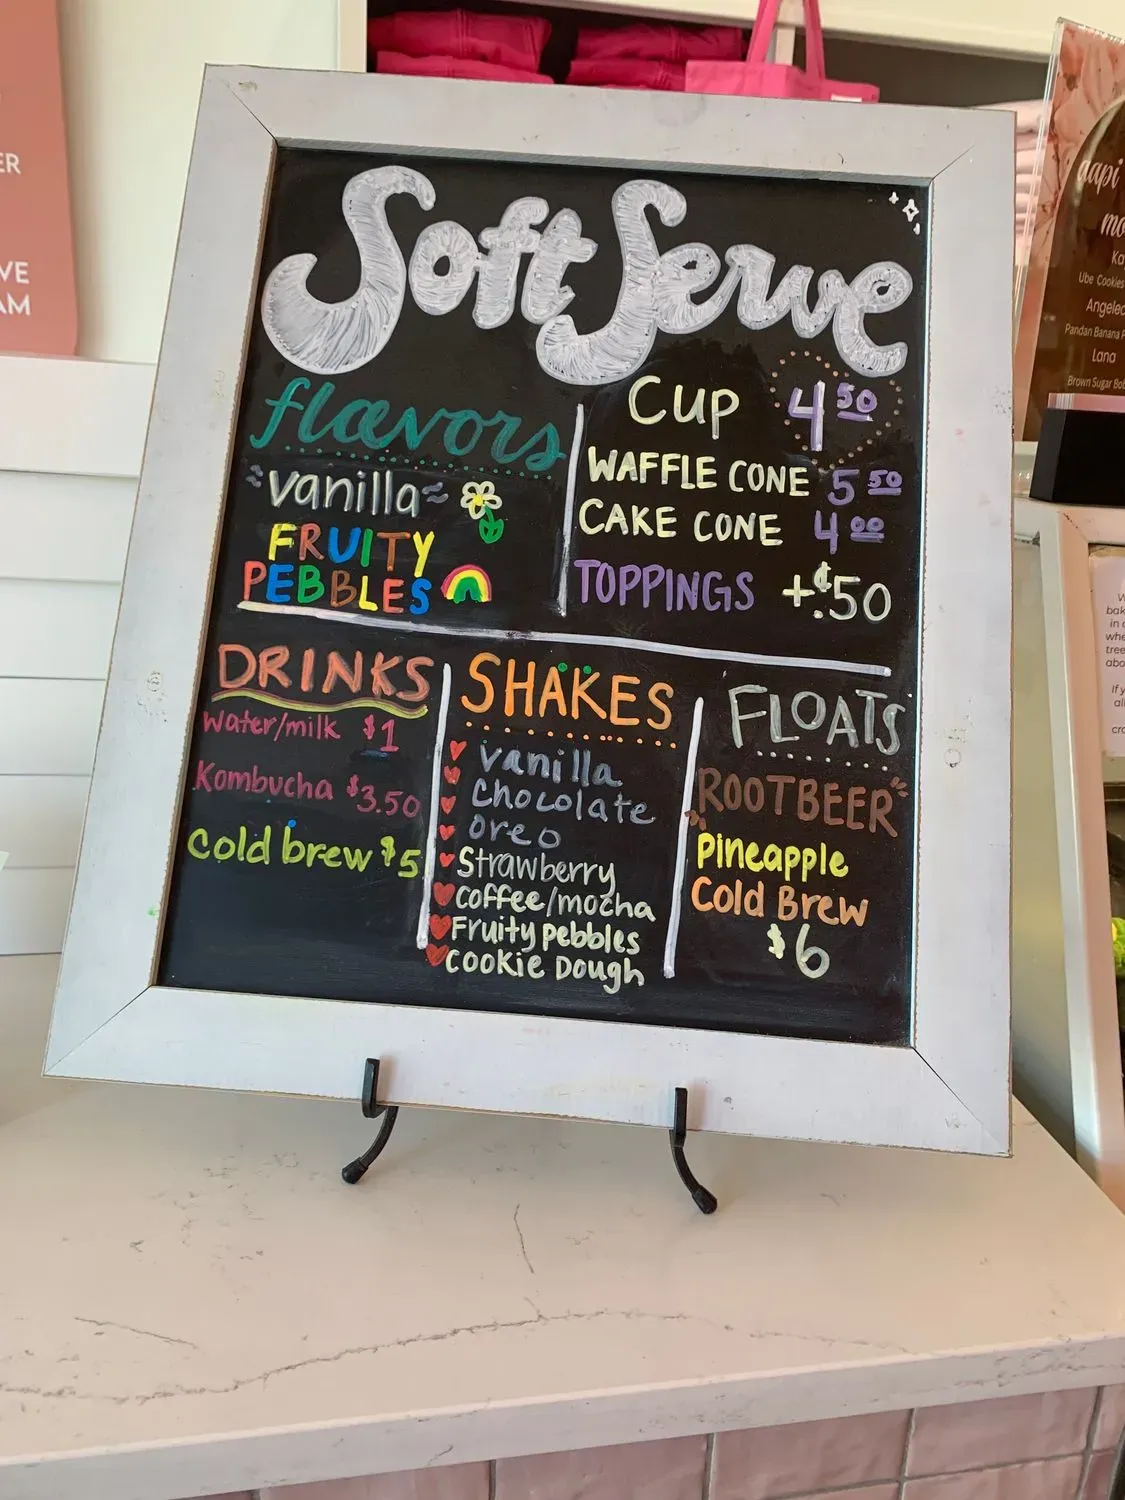 ER
VE
AM
Soft Serve
flavors
vanilla
FRUITY
PEBBLES
CUP 4.50
WAFFLE CONE 5.50
CAKE CONE 4.00
TOPPINGS +¢.50
DRINKS
Water/milk $1
Kombucha $3.50
Cold brew $5
SHAKES
vanilla
chocolate
oreo
Strawberry
coffee/mocha
Fruity pebbles
Cookie Dough
FLOATS
ROOTBEER
Pineapple
Cold Brew
$6
aapi
mo
Ka
Ube Cookies
Angelec
Pandan Banana P
Lana
Brown Sugar Bob
W
bak
in
whe
tree
abo
If y
al
cro